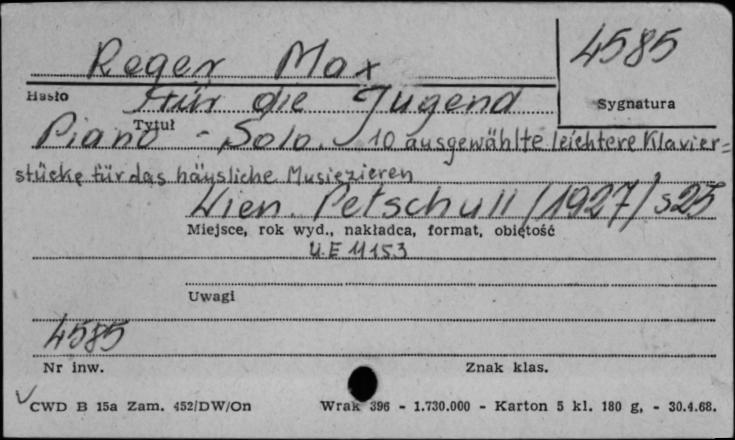 4585
Reger Max
Hasło
Für die Jugend
Sygnatura
Tytuł
Piano - Solo. 10 ausgewählte leichtere Klavier=
stücke für das häusliche Musiezieren
Wien. Petschull /1927/ s 23
Miejsce, rok wyd., nakładca, format, obiętość
U.E 11153
Uwagi
4585
Nr inw.
Znak klas.
CWD B 15a Zam. 452/DW/On
Wrak 396 - 1.730.000 - Karton 5 kl. 180 g, - 30.4.68.